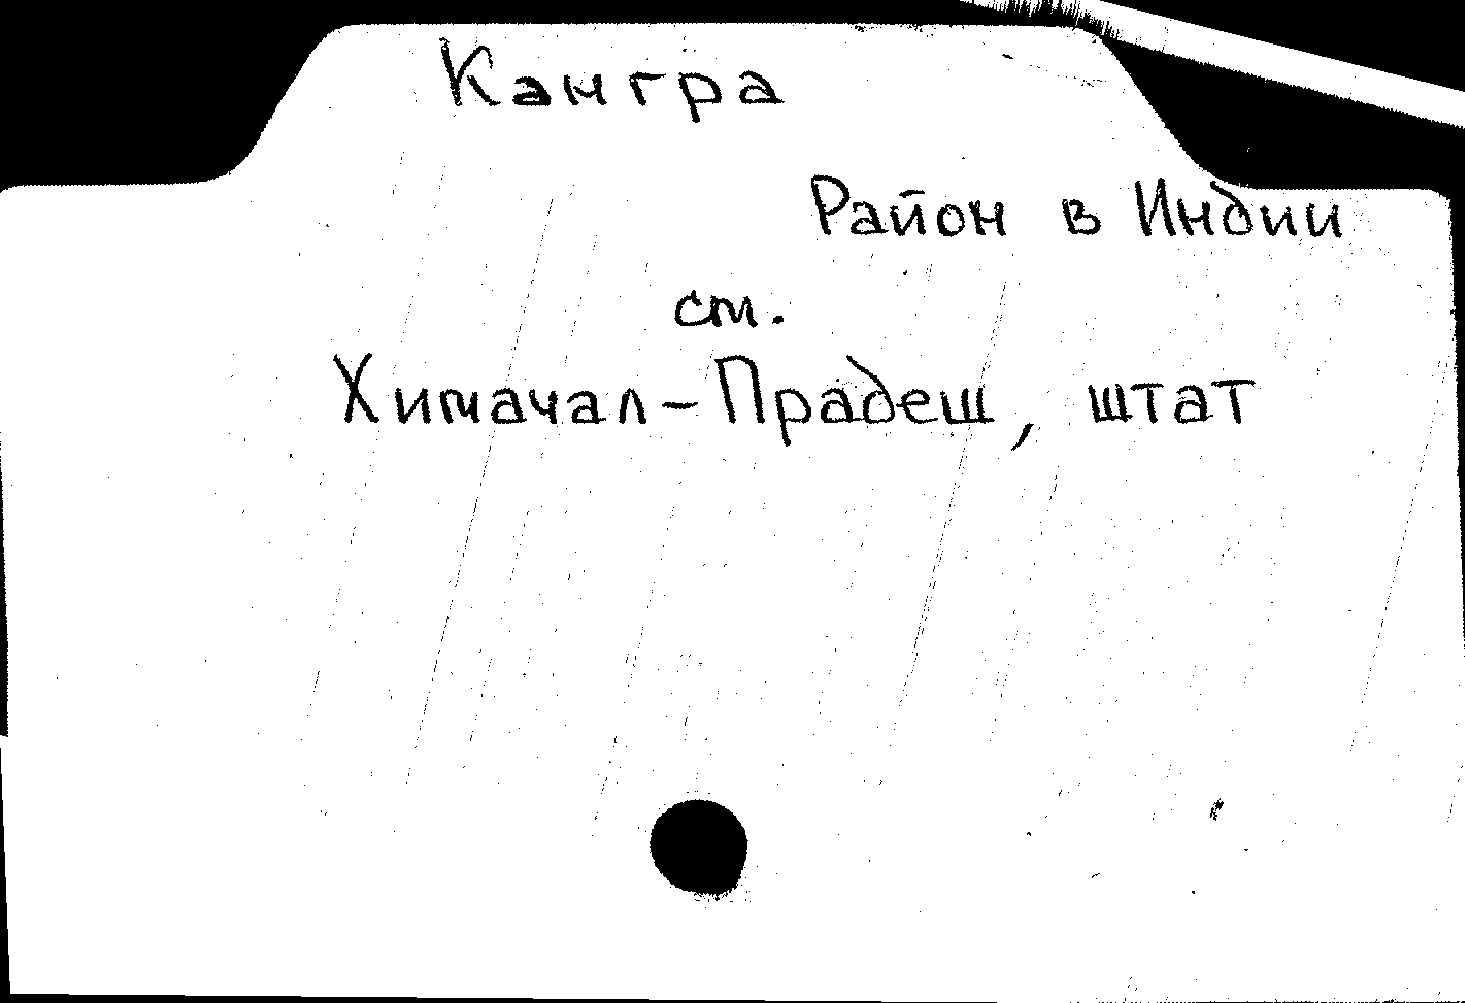 Кангра
Район в Индии
ст.
Химачал-Прадеш, штат